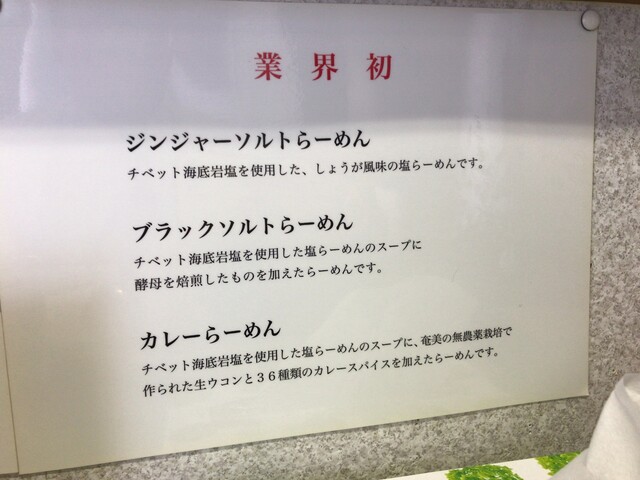 業界初
ジンジャーソルトらーめん
チベット海底岩塩を使用した、しょうが風味の塩らーめんです。
ブラックソルトらーめん
チベット海底岩塩を使用した塩らーめんのスープに
酵母を焙煎したものを加えたらーめんです。
カレーらーめん
チベット海底岩塩を使用した塩らーめんのスープに、奄美の無農薬栽培で
作られた生ウコンと３６種類のカレースパイスを加えたらーめんです。